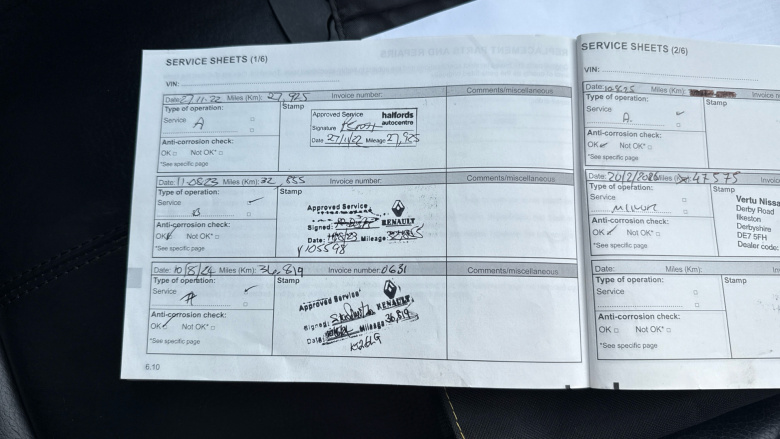 SERVICE SHEETS (1/6)
VIN:
Date: 27.11.22 Miles (Km): 27,925 Invoice number: Comments/miscellaneous
Type of operation: Stamp
Service
A
Anti-corrosion check:
OK Not OK*
*See specific page
Approved Service halfords
autocentre
Signature
Date 27/11/22 Mileage 27,925
Date: 11.08.23 Miles (Km): 32,855 Invoice number: Comments/miscellaneous
Type of operation: Stamp
Service
B
Anti-corrosion check:
OK Not OK*
*See specific page
Approved Service
Signed: RENAULT
Date: Mileage:
Y105598
Date: 10/8/24 Miles (Km): 36,819 Invoice number: 0631 Comments/miscellaneous
Type of operation: Stamp
Service
A
Anti-corrosion check:
OK Not OK*
*See specific page
Approved Service
Signed: RENAULT
Date: Mileage 36,819
6.10
SERVICE SHEETS (2/6)
VIN:
Date: Miles (Km): Invoice n
Type of operation: Stamp
Service
A.
Anti-corrosion check:
OK Not OK*
*See specific page
Date: 20/2/2026 Miles (Km): 47575 Invoic
Type of operation: Stamp
Service
Anti-corrosion check:
OK Not OK*
*See specific page
Vertu Nissa
Derby Road
Ilkeston
Derbyshire
DE7 5FH
Dealer code:
Date: Miles (Km): Invoi
Type of operation: Stamp
Service
Anti-corrosion check:
OK Not OK*
*See specific page